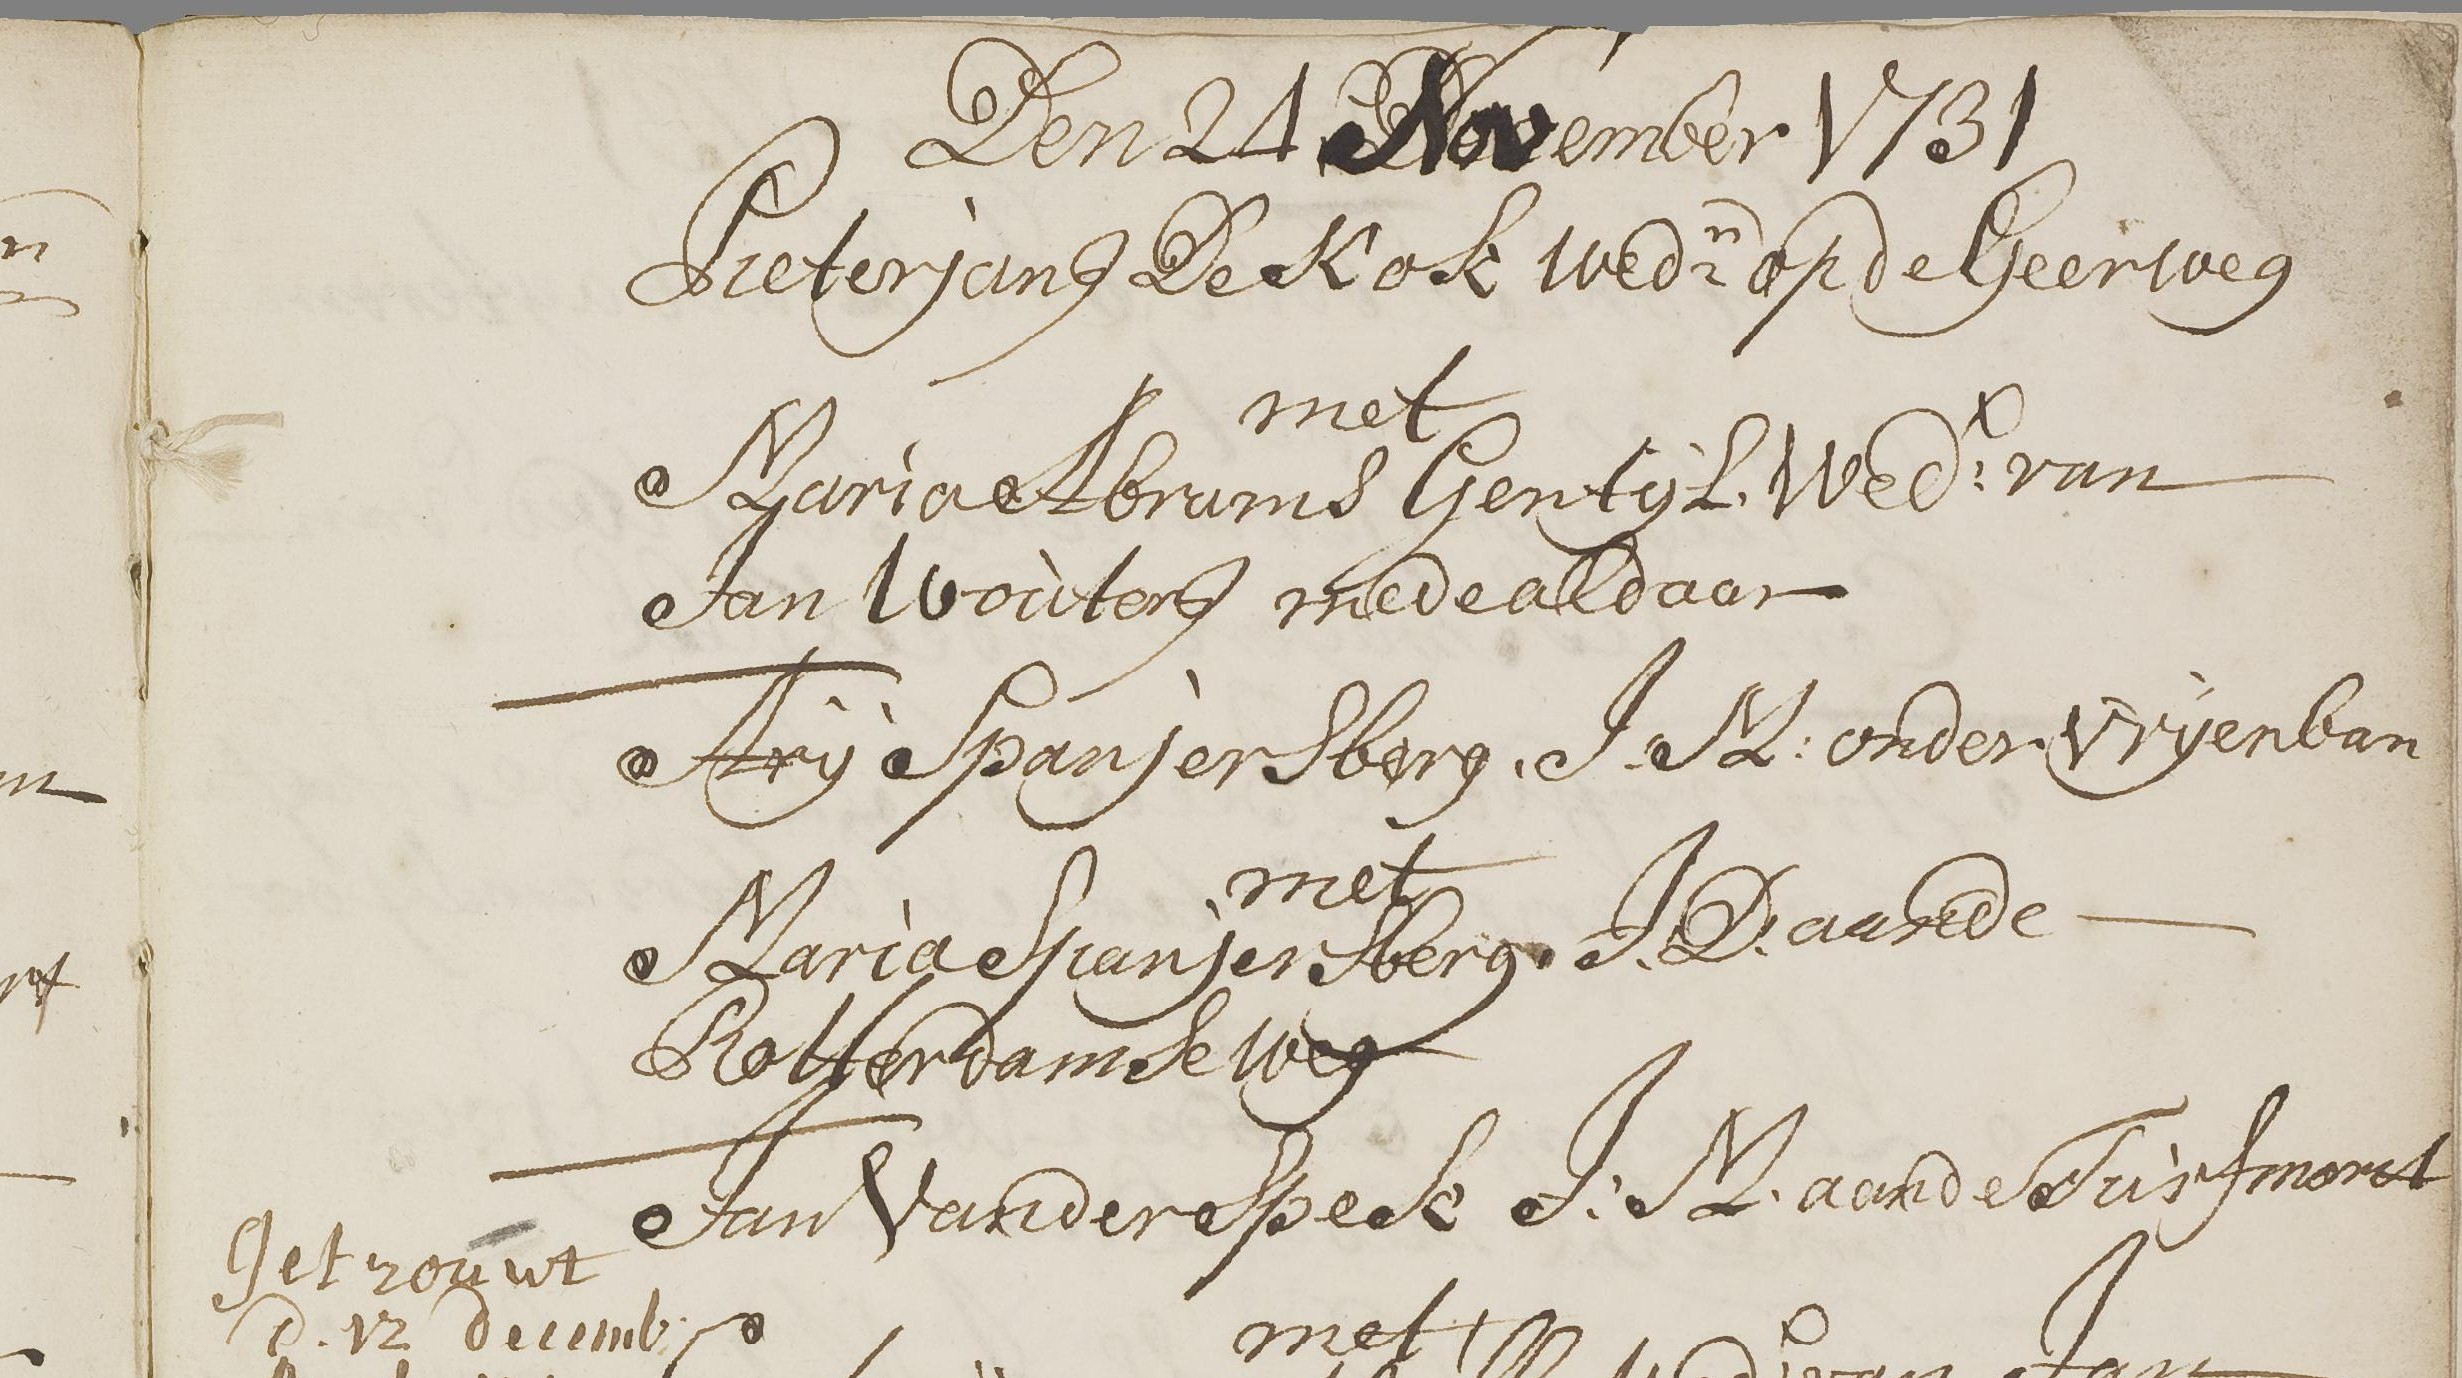 Den 24 November 1731
Pieter jans De Kok Wedn.r op de Geerweg
met
Maria Abrams Gentijl. Wed.e van
Jan Wouters mede aldaar
Arij Spanjersberg. J: M: onder Vrijenban
met
Maria Spanjersberg. J: D: aan de
Rotterdamse Weg
Jan Vander Speck J: M. aan de Turfmarct
Getrouwt
d. 12 decemb:
met
Wed.e van Jan